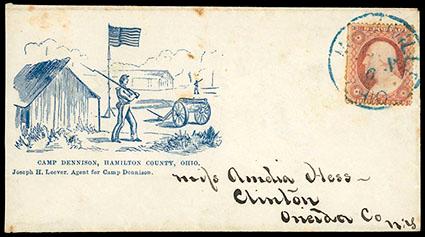 CAMP DENNISON, HAMILTON COUNTY, OHIO.
Joseph H. Leever, Agent for Camp Dennison.
Miss Amelia Hess
Clinton
Oneida Co
N.Y.